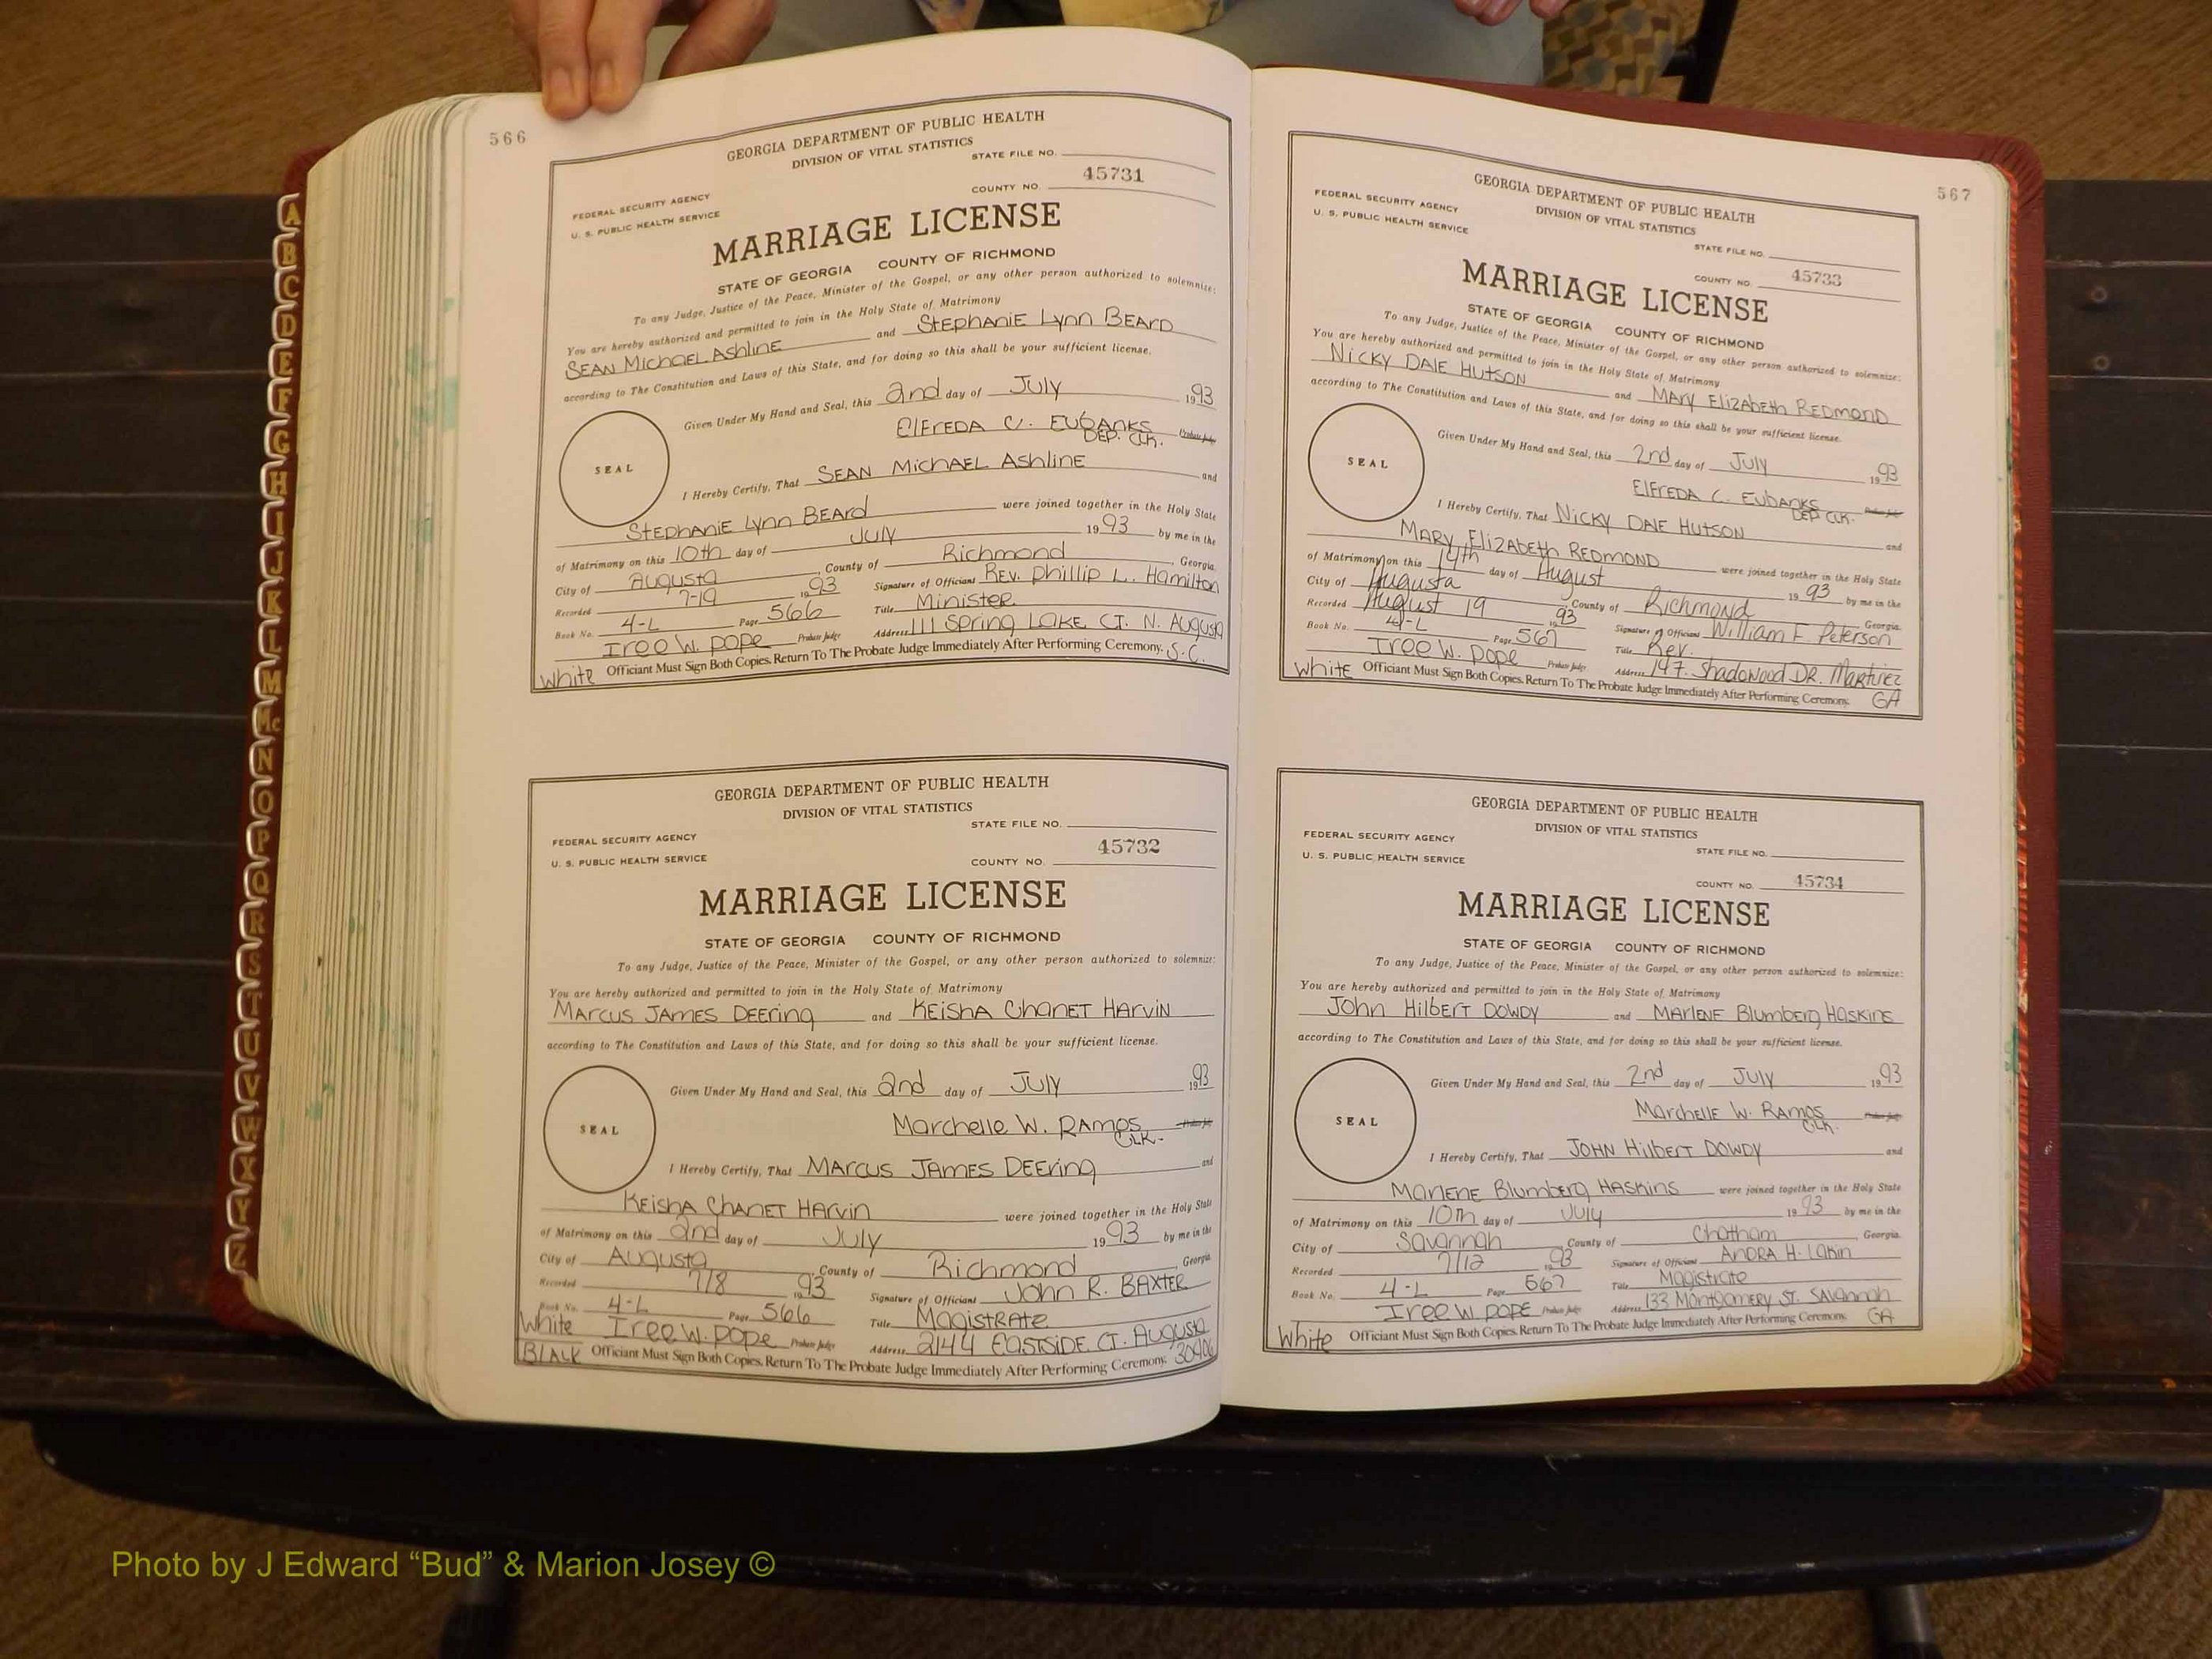 566
GEORGIA DEPARTMENT OF PUBLIC HEALTH
DIVISION OF VITAL STATISTICS
STATE FILE NO.
FEDERAL SECURITY AGENCY
U. S. PUBLIC HEALTH SERVICE
COUNTY NO. 45731
MARRIAGE LICENSE
STATE OF GEORGIA COUNTY OF RICHMOND
To any Judge, Justice of the Peace, Minister of the Gospel, or any other person authorized to solemnize:
You are hereby authorized and permitted to join in the Holy State of Matrimony
SEAN MichaEL Ashline and StEphaniE Lynn BEARD
according to The Constitution and Laws of this State, and for doing so this shall be your sufficient license.
Given Under My Hand and Seal, this 2nd day of July 1993
ElFrEDA C. EuBANKS Probate Judge
DEP. Clk.
SEAL
I Hereby Certify, That SEAN MichAEL Ashline and
StEphanIE Lynn BEARd were joined together in the Holy State
of Matrimony on this 10th day of July 1993 by me in the
City of Augusta, County of Richmond, Georgia.
Recorded 7-19 1993 Signature of Officiant REV. Phillip L. Hamilton
Book No. 4-L Page 566 Title MinistER
IreE W. PopE Probate Judge Address 111 Spring LAKE CT. N. Augusta
S.C.
White Officiant Must Sign Both Copies. Return To The Probate Judge Immediately After Performing Ceremony.
GEORGIA DEPARTMENT OF PUBLIC HEALTH
DIVISION OF VITAL STATISTICS
STATE FILE NO.
FEDERAL SECURITY AGENCY
U. S. PUBLIC HEALTH SERVICE
COUNTY NO. 45732
MARRIAGE LICENSE
STATE OF GEORGIA COUNTY OF RICHMOND
To any Judge, Justice of the Peace, Minister of the Gospel, or any other person authorized to solemnize:
You are hereby authorized and permitted to join in the Holy State of Matrimony
MARCUS JAMES DEEring and KEISHA ChanET HArviN
according to The Constitution and Laws of this State, and for doing so this shall be your sufficient license.
Given Under My Hand and Seal, this 2nd day of July 1993
Marchelle W. RAmos
CLK.
SEAL
I Hereby Certify, That MARCUS JAMES DEEring and
KEisha ChanET HArvin were joined together in the Holy State
of Matrimony on this 2nd day of July 1993 by me in the
City of Augusta, County of Richmond, Georgia
Recorded 7/8 1993 Signature of Officiant John R. BAXTER
Book No. 4-L Page 566 Title MAgistRAtE
White IreE W. PopE Probate Judge Address 2144 EASTSIDE CT. Augusta
30906
BLACK Officiant Must Sign Both Copies. Return To The Probate Judge Immediately After Performing Ceremony.
567
GEORGIA DEPARTMENT OF PUBLIC HEALTH
DIVISION OF VITAL STATISTICS
FEDERAL SECURITY AGENCY
U. S. PUBLIC HEALTH SERVICE
STATE FILE NO.
COUNTY NO. 45733
MARRIAGE LICENSE
STATE OF GEORGIA COUNTY OF RICHMOND
To any Judge, Justice of the Peace, Minister of the Gospel, or any other person authorized to solemnize:
You are hereby authorized and permitted to join in the Holy State of Matrimony
Nicky DALE HUTSON and MARy ElizAbeth REDmond
according to The Constitution and Laws of this State, and for doing so this shall be your sufficient license.
Given Under My Hand and Seal, this 2nd day of July 1993
ElFREDA C. EuBANKS
DEP CLK.
SEAL
I Hereby Certify, That Nicky DALE HUTSON and
MARY ElizAbeth REDMOND were joined together in the Holy State
of Matrimony on this 14th day of August 1993 by me in the
City of Augusta County of Richmond Georgia.
Recorded August 19 1993 Signature of Officiant William F. Peterson
Book No. 4-L Page 567 Title Rev.
IreE W. PopE Probate Judge Address 147 Shadowood DR. Martinez
GA
White Officiant Must Sign Both Copies. Return To The Probate Judge Immediately After Performing Ceremony.
GEORGIA DEPARTMENT OF PUBLIC HEALTH
DIVISION OF VITAL STATISTICS
FEDERAL SECURITY AGENCY
U. S. PUBLIC HEALTH SERVICE
STATE FILE NO.
COUNTY NO. 45734
MARRIAGE LICENSE
STATE OF GEORGIA COUNTY OF RICHMOND
To any Judge, Justice of the Peace, Minister of the Gospel, or any other person authorized to solemnize:
You are hereby authorized and permitted to join in the Holy State of Matrimony
John HilbERT DOWDY and MArlENE Blumberg HASKINS
according to The Constitution and Laws of this State, and for doing so this shall be your sufficient license.
Given Under My Hand and Seal, this 2nd day of July 1993
MarchellE W. RAmos
CLK.
SEAL
I Hereby Certify, That JOHN HilbERT DOWDY and
MArlENE Blumberg HASKINS were joined together in the Holy State
of Matrimony on this 10th day of July 1993 by me in the
City of Savannah County of Chatham Georgia.
Recorded 7/12 1993 Signature of Officiant ANDRA H. Lakin
Book No. 4-L Page 567 Title Magistrate
IreE W. POPE Probate Judge Address 133 Montgomery St. SAVannah
GA
White Officiant Must Sign Both Copies. Return To The Probate Judge Immediately After Performing Ceremony.
A
B
C
D
E
F
G
H
I
J
K
L
M
Mc
N
O
P
Q
R
S
T
U
V
W
X
Y
Z
Photo by J Edward “Bud” & Marion Josey ©